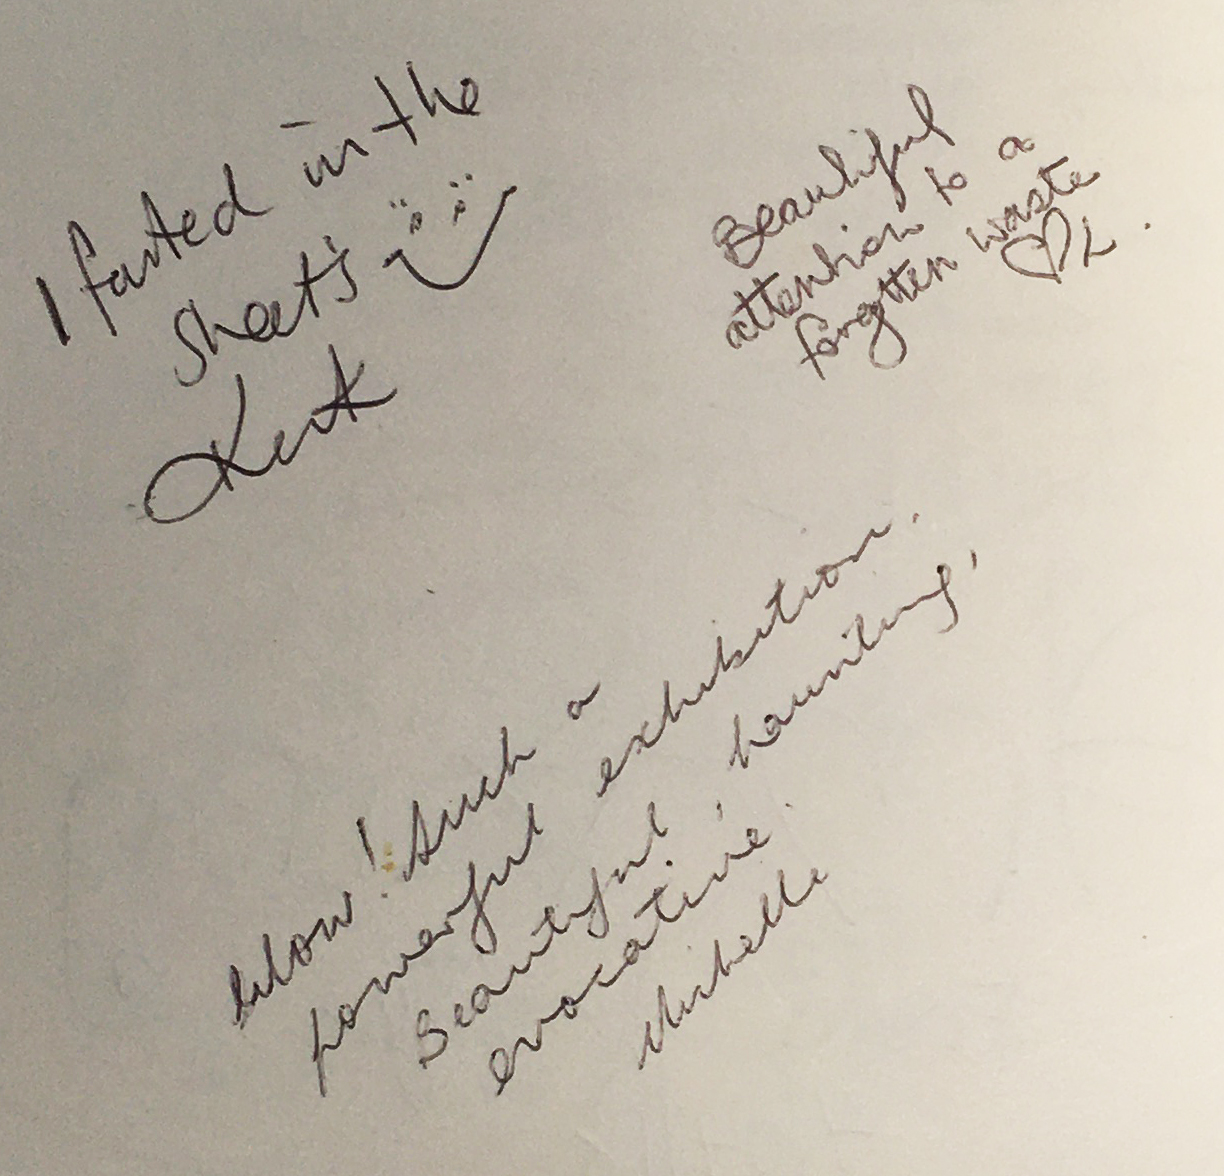 I farted in the
sheets
Kurt
Beautiful
attention to a
forgotten waste
♡ L.
Wow! Such a
powerful exhibition.
Beautiful, haunting,
evocative.
Michelle